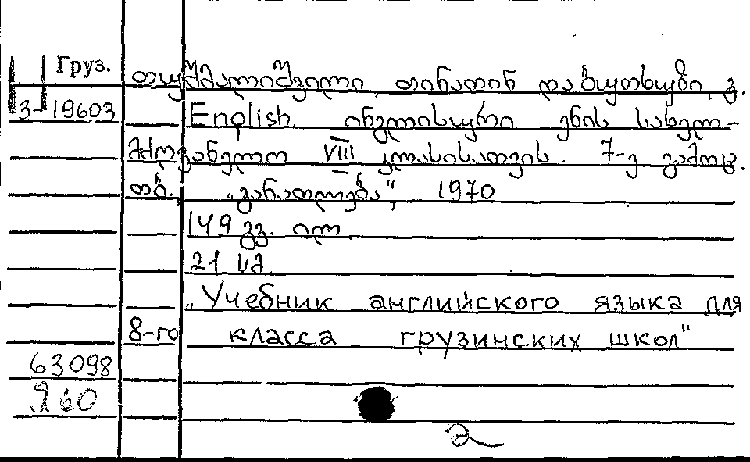 Груз.
თუშმალიშვილი, თინათინ და ზუთხუზი, ვ.
3-19603
English ინგლისური ენის სახელ-
მძღვანელო VIII კლასისათვის. 7-ე გამოც.
თბ. „განათლება", 1970
149 გვ. ილ.
21 სმ
„Учебник английского языка для
8-го класса грузинских школ"
63098
960